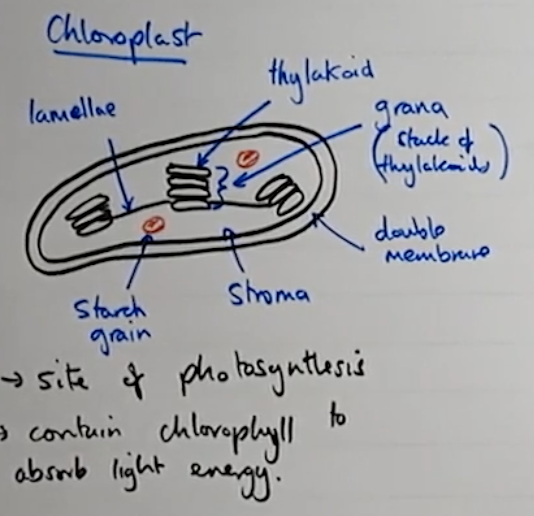 Chloroplast
thylakoid
lamellae
grana
(stack of
thylakoids)
double
membrane
Starch
grain
Stroma
→ site of photosynthesis
→ contain chlorophyll to
absorb light energy.